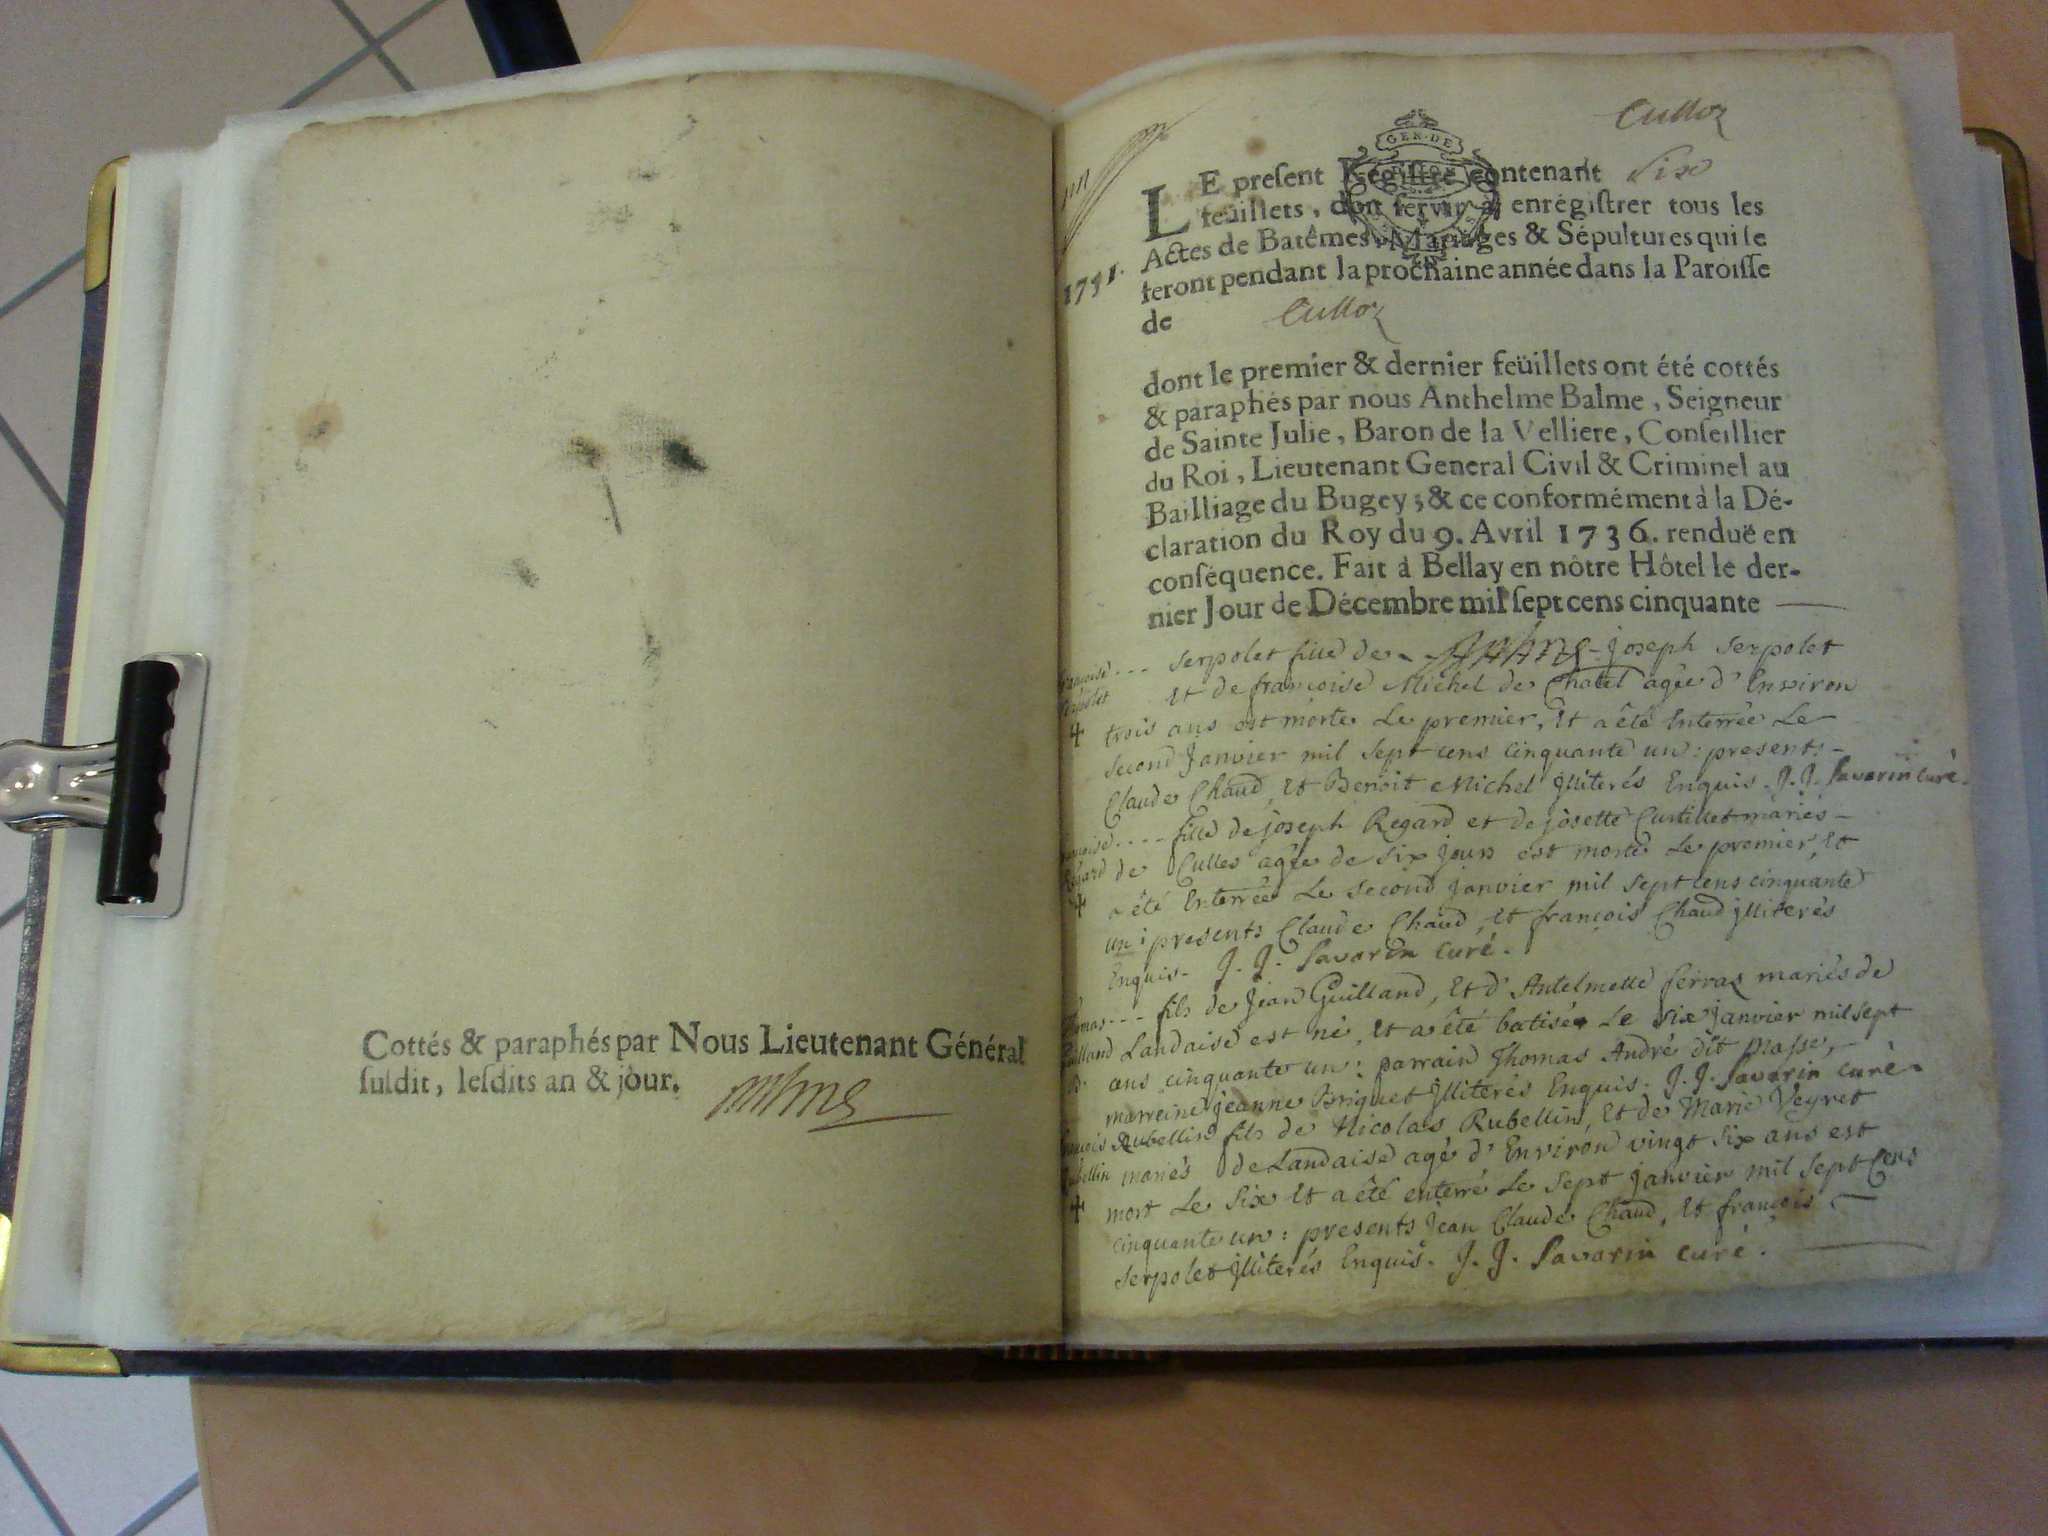 Cottés & paraphés par Nous Lieutenant Général
susdit, lesdits an & jour.
Culloz
GEN·DE
LE present Registre contenant Six
feüillets, doit servir à enrégistrer tous les
Actes de Batêmes, Mariages & Sépultures qui se
feront pendant la prochaine année dans la Paroisse
de Culloz
1751.
dont le premier & dernier feüillets ont été cottés
& paraphés par nous Anthelme Balme, Seigneur
de Sainte Julie, Baron de la Velliere, Conseillier
du Roi, Lieutenant General Civil & Criminel au
Bailliage du Bugey; & ce conformément à la Dé-
claration du Roy du 9. Avril 1736. renduë en
conséquence. Fait à Bellay en nôtre Hôtel le der-
nier Jour de Décembre mil sept cens cinquante
serpolet fille de joseph serpolet
Et de françoise Michel de Chatel agée d'Environ
trois ans est morte Le premier, Et a êté Enterrée Le
second Janvier mil sept cens cinquante un : presents
Claude Chaud, Et Benoit Michel illiterés Enquis. J. J. Savarin curé.
fille de joseph Regard et de josette Curtillet mariés
de Culles agée de six jours est morte Le premier, Et
a êté Enterrée Le second janvier mil sept cens cinquante
un : presents Claude Chaud, Et françois Chaud illiterés
Enquis. J. J. Savarin curé.
fils de jean Guilland, Et d'Antelmette servaz mariés de
Landaise est né, Et a êté batisé Le six janvier mil sept
cens cinquante un : parrain Thomas André dit Masse,
marreine jeanne Briguet illiterés Enquis. J. J. Savarin curé.
Rubellin fils de Nicolas Rubellin, Et de Marie Veyret
mariés de Landaise agé d'Environ vingt six ans est
mort Le six Et a êté enterré Le sept janvier mil sept Cens
cinquante un : presents jean Claude Chaud, Et françois
serpolet illiterés Enquis. J. J. Savarin curé.